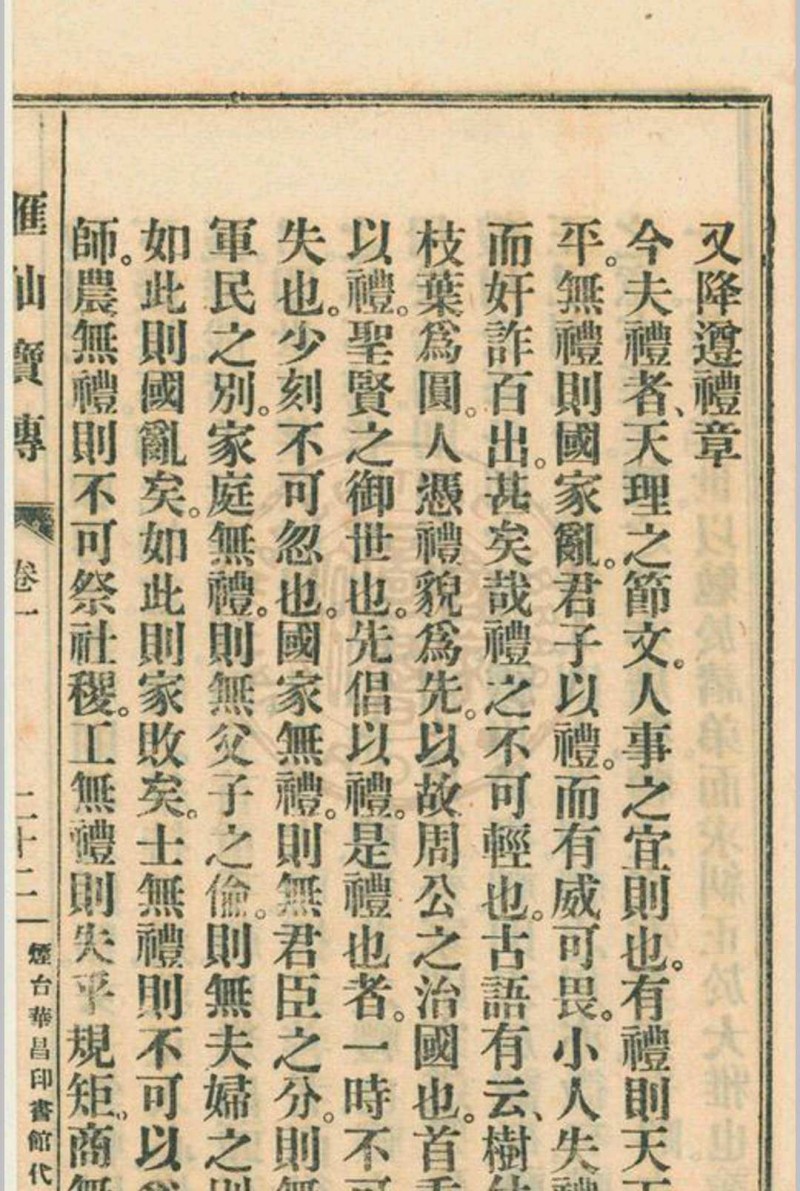 又降遵禮章
今夫禮者、天理之節文。人事之宜則也。有禮則天下
平。無禮則國家亂。君子以禮。而有威可畏。小人失禮
而奸詐百出。甚矣哉禮之不可輕也。古語有云、樹
枝葉爲圓。人憑禮貌爲先。以故周公之治國也。首
以禮。聖賢之御世也。先倡以禮。是禮也者。一時不可
失也。少刻不可忽也。國家無禮。則無君臣之分。則無
軍民之別。家庭無禮。則無父子之倫。則無夫婦之別
如此則國亂矣。如此則家敗矣。士無禮則不可以
師。農無禮則不可祭社稷。工無禮則失乎規矩。商無
匯仙寶傳 卷一 二十二 煙台華昌印書館代